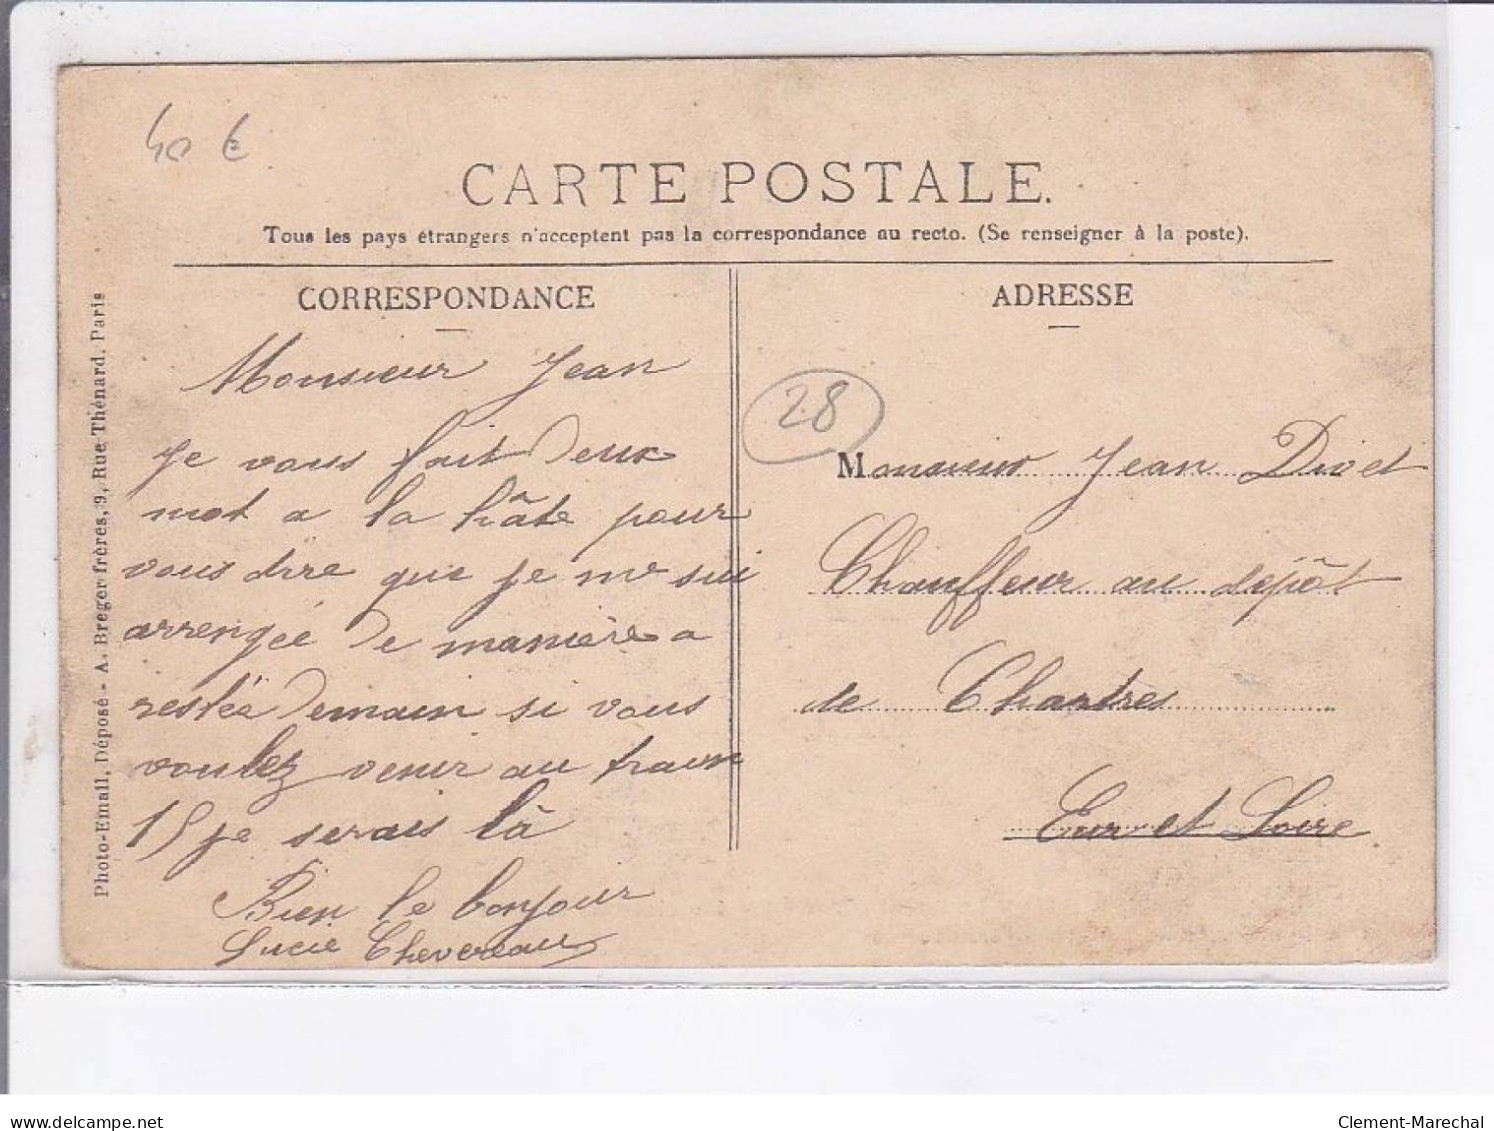 40 €
CARTE POSTALE.
Tous les pays étrangers n'acceptent pas la correspondance au recto. (Se renseigner à la poste).
CORRESPONDANCE
Monsieur Jean
Je vous fait deux
mot a la hâte pour
vous dire que je me sui
arrengée de manière a
restée demain si vous
voulez venir au train
15 je serais là
Bien le bonjour
Lucie Chevereau
ADRESSE
28
Monsieur Jean Divet
Chauffeur au dépôt
de Chartres
Eur et Loire
Photo-Email, Déposé - A. Breger frères, 9, Rue Thénard, Paris
delcampe.net
Clement-Marechal